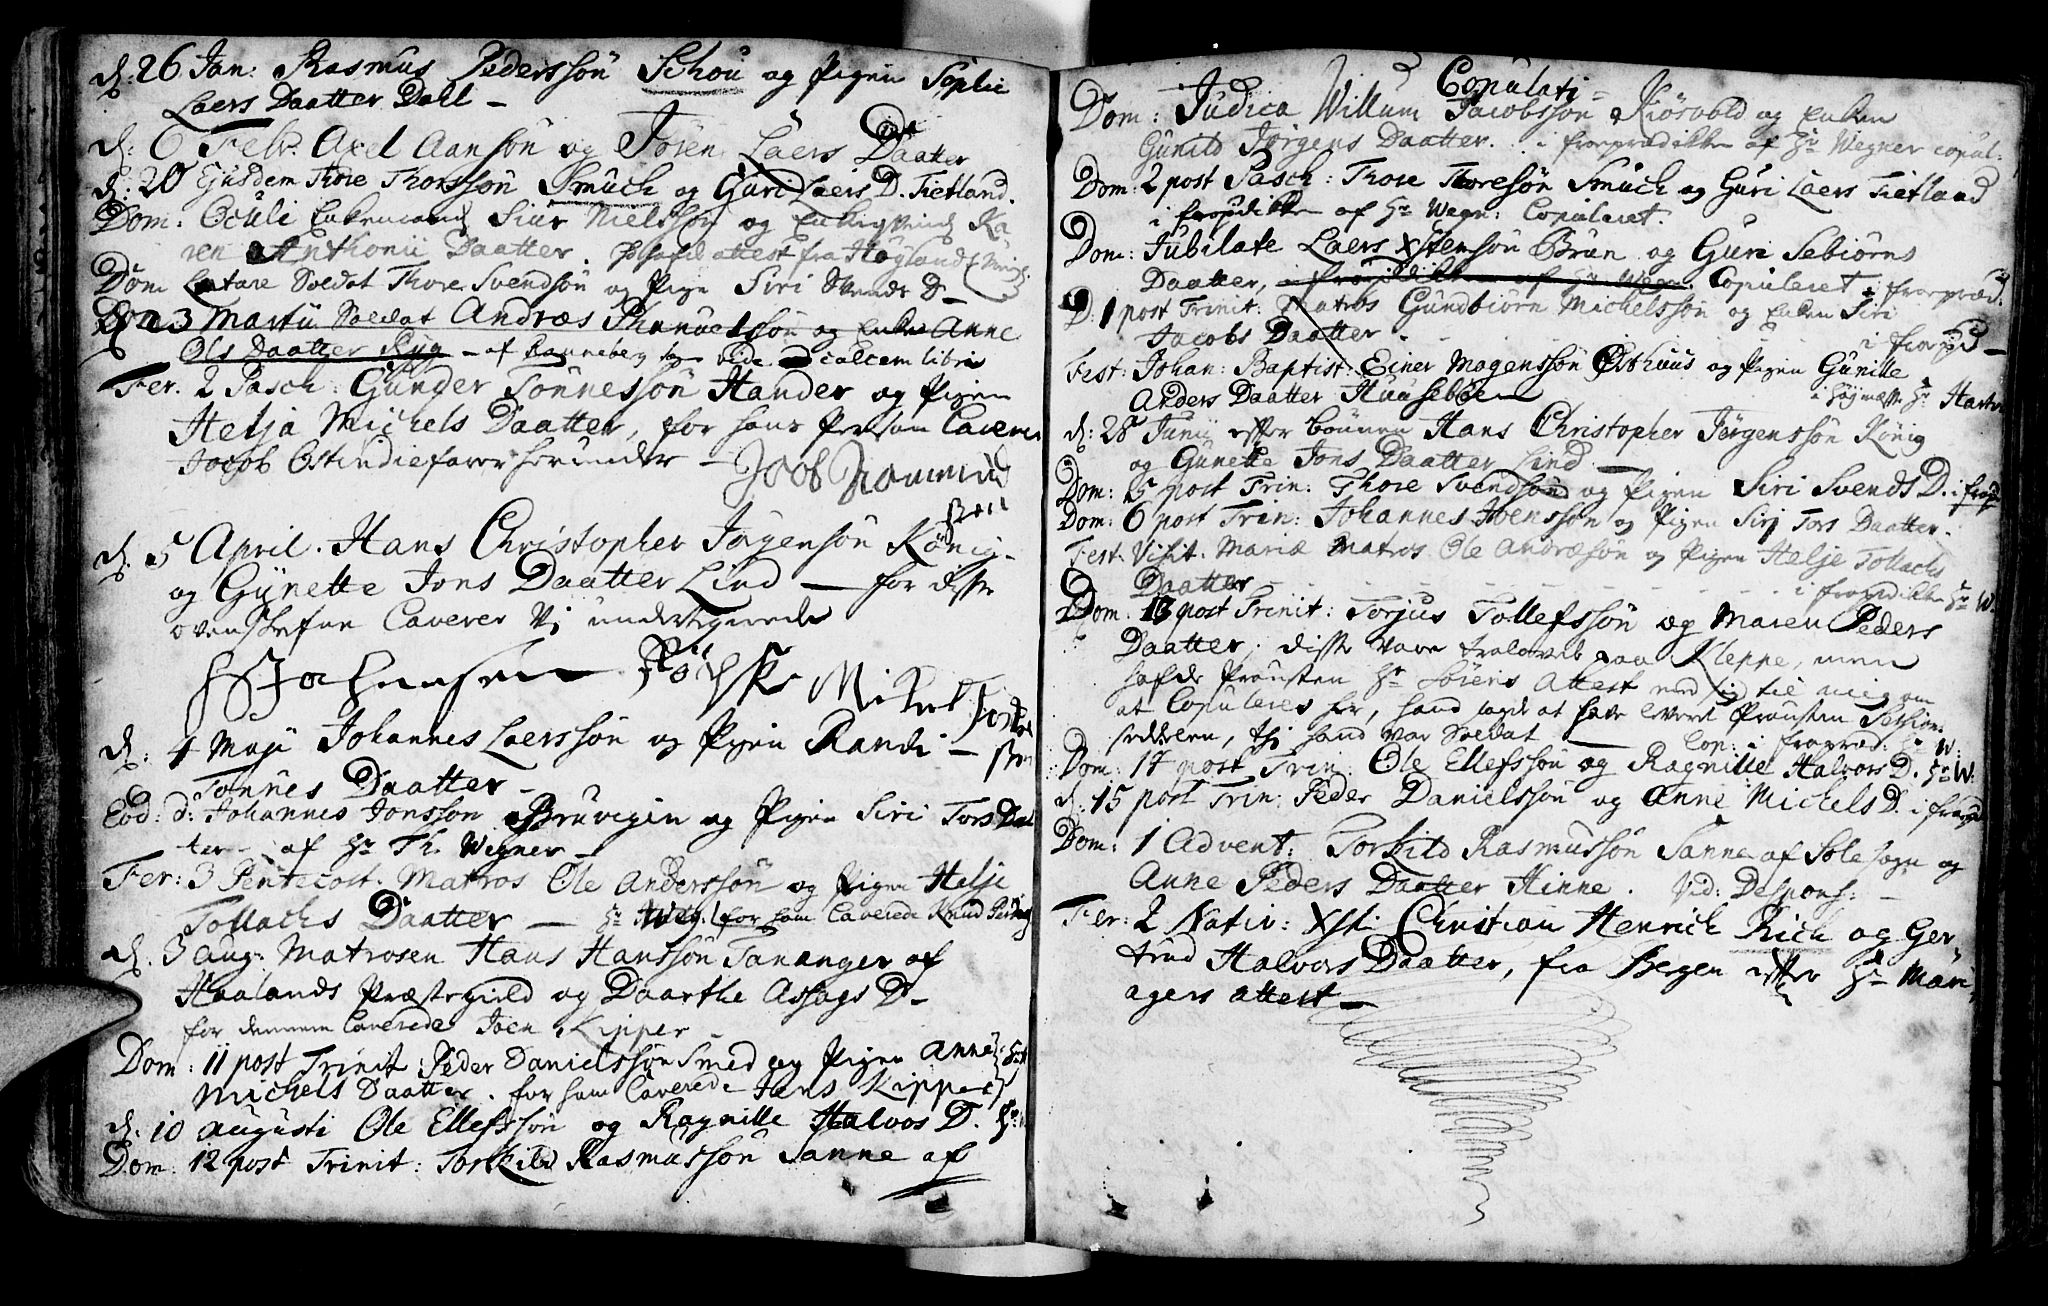 d: 26 Jan: Rasmus Pedersson Schou og Pigen Sophie
Laers Daatter Dahl –
d: 6 Febr: Axel Aanson og Joren Laers Daatter
d: 20 Ejusdem Thore Thorsson Smuch og Guri Laers D. Tietland.
Dom: Oculi Enkemand Siur Nielsson og Enkeqvind Ka
ren Anthonii Daatter. attest fra Høylands
Dom Lætare Soldat Thore Svendson og Pige Siri Svends D –
d. 3 Martii Soldat Andræs og Enken Anne
Ols Daatter Ryg – af Ranneberg vide ad calcem libri
Fer: 2 Pasch: Gunder Tønnesson Hander og Pigen
Helja Michels Daatter, for hans Person Caverer
Jacob Ostindiefarer herunder –
d. 5 April. Hans Christopher Jørgensøn König
og Gynette Jons Daatter Lind – for disse
ovenskefne Caverer Vi undertegnede
d: 4 Maji Johannes Laersson og Pigen Randi –
Tønnes Daatter –
Eod: d: Johannes Jonsson Bruvigen og Pigen Siri Tors Daat
ter – af Hr Th. Wegner –
Fer: 3 Pentecost: Matros Ole Andersson og Pigen Helje
Tollachs Daatter – Hr Weg. for ham Caverede Knud
d. 3 Aug: Matrosen Hans Hansson Tananger af
Haalands Præstegield og Daarthe Assags D –
for dennem Caverede Joen Kipper –
Dom: 11 post Trinit: Peder Danielsson Smed og Pigen Anne
Michels Daatter. for ham Caverede Jens Kipper
d: 10 Augusti Ole Ellefsson og Ragnille Halvors D. Hr
Dom: 12 post Trinit: Torkild Rasmusson Sanne af
Copulati
Dom: Judica Willum Jacobsson Kiosvold og Enken
Gunild Jørgens Daatter. i froeprædikken af Hr Wegner copul:
Dom: 2 post Pasch: Thore Thoreson Smuch og Guri Laers Tietland
i af Hr Wegn: Copuleret.
Dom: Jubilate Laers Xstenson Brun og Guri Sebiørns
Daatter, Copuleret i froepræd:
D. 1 post Trinit: Matros Gundbiørn Michelsson og Enken Siri
Jacobs Daatter. i
Fest: Johan: Baptist: Einer Mogensson Østhuus og Pigen Gunille
Anders Daatter Huusebøe i Høymesse Hr
d: 28 Junii efter bønnen Hans Christopher Jørgensson König
og Gunette Jons Daatter Lind –
Dom: 5 post Trin: Thore Svendson og Pigen Siri Svends D.
Dom: 6 post Trin: Johannes Joensson og Pigen Sirj Tors Daatter.
Fest: Visit. Mariæ Matros Ole Andræson og Pigen Helje Tollachs
Daatter i froeprædikken Hr W.
Dom: 13 post Trinit: Torjus Tollefsson og Maren Peders
Daatter, disse vare trolovet paa Kleppe, men
hafde Prousten Hr Sørens Attest med sig til mig om
at Copuleres her, hand sagde at have leveret Prousten
sedelen, thj hand var Soldat – Cop: i froepræd: Hr W.
Dom: 14 post Trin: Ole Ellefsson og Ragnille Halvors D. Hr W.
d. 15 post Trin: Peder Danielsson og Anne Michels D.
Dom: 1 Advent: Torkild Rasmusson Sanne af Sole sogn og
Anne Peders Daatter Hinne. Vid: Despons: –
Fer: 2 Nativ: Xsti Christian Henrich Rich og Ger
trud Halvors Daatter, fra Bergen efter Hr Mari
agers attest –